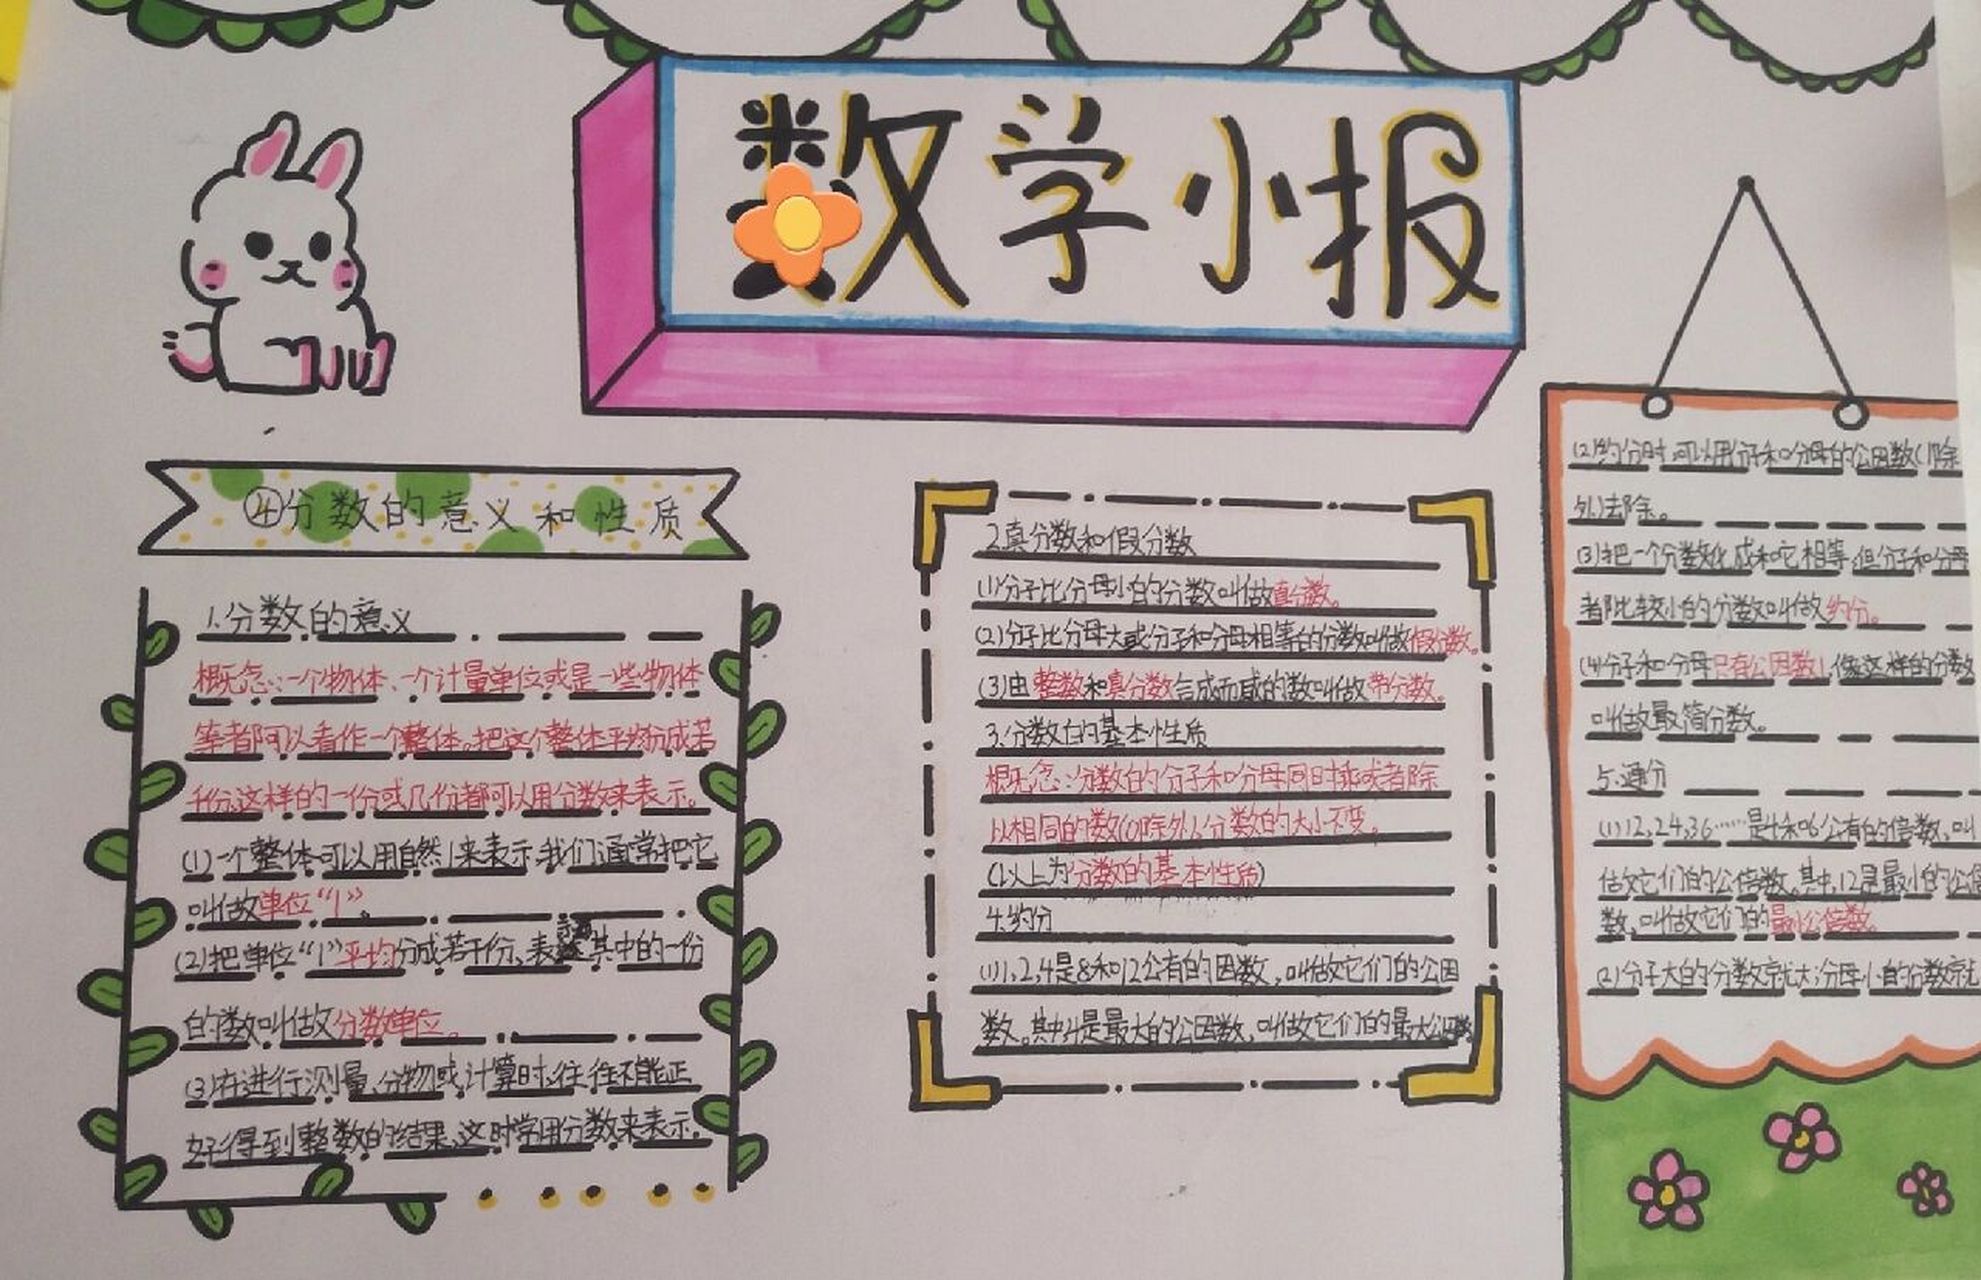 数学小报
④分数的意义和性质
1.分数的意义
概念:一个物体、一个计量单位或是一些物体
等者都可以看作一个整体。把这个整体平均分成若
干份,这样的一份或几份都可以用分数来表示。
(1)一个整体可以用自然1来表示,我们通常把它
叫做单位“1”。
(2)把单位“1”平均分成若干份、表示其中的一份
的数叫做分数单位。
(3)在进行测量、分物或计算时,往往不能正
好得到整数的结果,这时常用分数来表示。
2.真分数和假分数
(1)分子比分母小的分数叫做真分数。
(2)分子比分母大或分子和分母相等的分数叫做假分数。
(3)由整数和真分数合成而成的数叫做带分数。
3.分数的基本性质
概念:分数的分子和分母同时乘或者除
以相同的数(0除外),分数的大小不变。
(以上为分数的基本性质)
4.约分
(1)1,2,4是8和12公有的因数,叫做它们的公因
数。其中,4是最大的公因数,叫做它们的最大公因数
(2)约分时,可以用分子和分母的公因数(1除
外)去除。
(3)把一个分数化成和它相等,但分子和分母
都比较小的分数叫做约分。
(4)分子和分母只有公因数1,像这样的分数
叫做最简分数。
5.通分
(1)12,24,36……是4和6公有的倍数,叫
做它们的公倍数。其中,12是最小的公倍
数,叫做它们的最小公倍数。
(2)分子大的分数就大;分母小的分数就